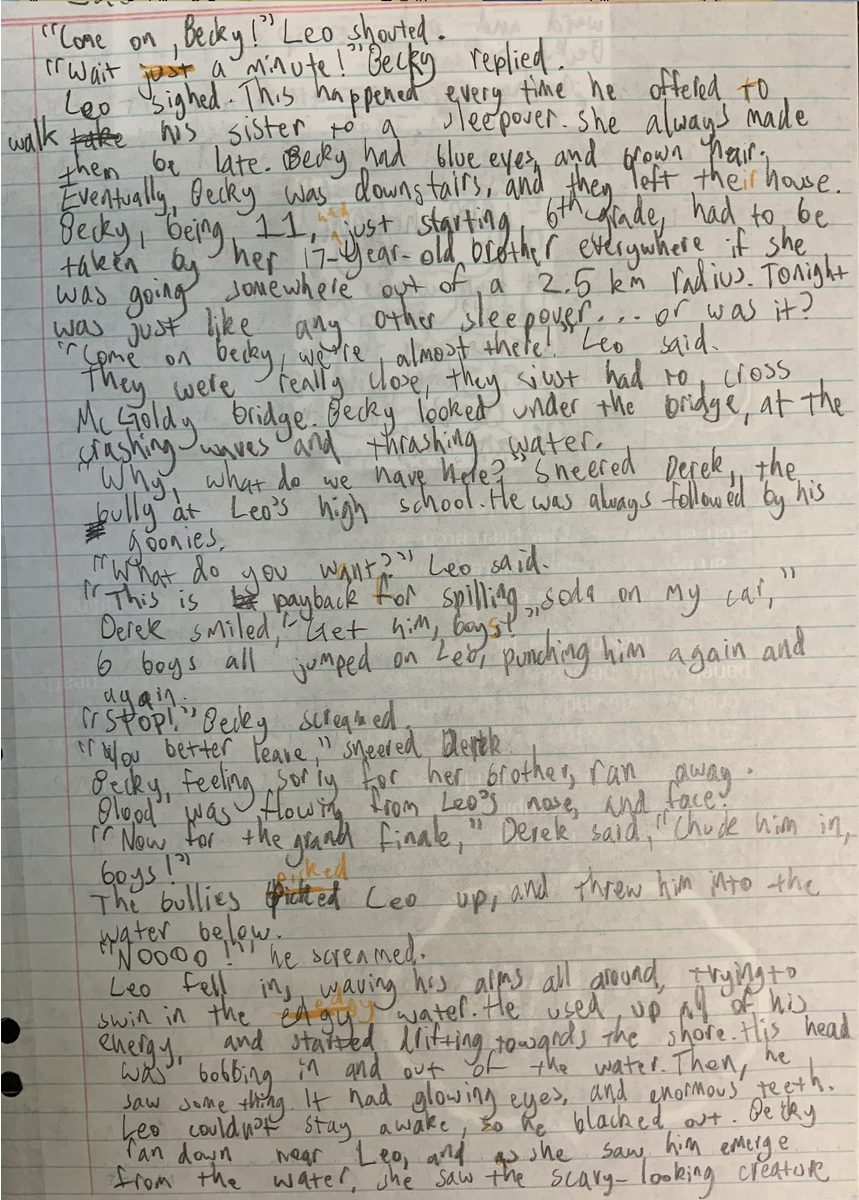 "Come on, Becky!" Leo shouted.
"Wait just a minute!" Becky replied.
Leo sighed. This happened every time he offered to
walk take his sister to a sleepover. She always made
them be late. Becky had blue eyes, and brown hair.
Eventually, Becky was downstairs, and they left their house.
Becky, being 11, and just starting 6th grade, had to be
taken by her 17-year-old brother everywhere if she
was going somewhere out of a 2.5 km radius. Tonight
was just like any other sleepover... or was it?
"Come on becky, we're almost there!" Leo said.
They were really close, they just had to cross
McGoldy bridge. Becky looked under the bridge, at the
crashing waves and thrashing water.
"Why, what do we have here?" Sneered Derek, the
bully at Leo's high school. He was always followed by his
goonies.
"What do you want?" Leo said.
"This is payback for spilling soda on my car,"
Derek smiled, "Get him, boys!"
6 boys all jumped on Leo, punching him again and
again.
"STOP!" Becky screamed.
"You better leave," sneered Derek.
Becky, feeling sorry for her brother, ran away.
Blood was flowing from Leo's nose, and face.
"Now for the grand finale," Derek said, "Chuck him in,
boys!"
The bullies picked Leo up, and threw him into the
water below.
"NOOOO!" he screamed.
Leo fell in, waving his arms all around, trying to
swin in the edgy water. He used up all of his
energy, and started drifting towards the shore. His head
was bobbing in and out of the water. Then, he
saw something. It had glowing eyes, and enormous teeth.
Leo couldn't stay awake, so he blacked out. Becky
ran down near Leo, and as she saw him emerge
from the water, she saw the scary-looking creature